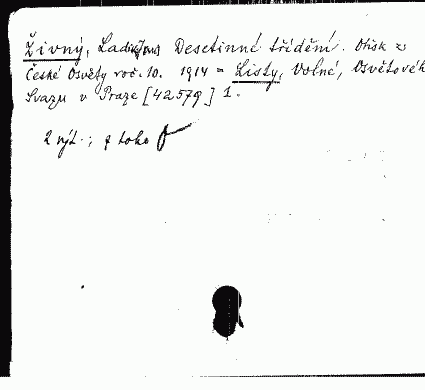 Živný, Ladislav Desetinné třídění. Otisk z
České Osvěty roč. 10. 1914 = Listy, Volné, Osvětového
Svazu v Praze [42579] 1.
2 výt.; z toho